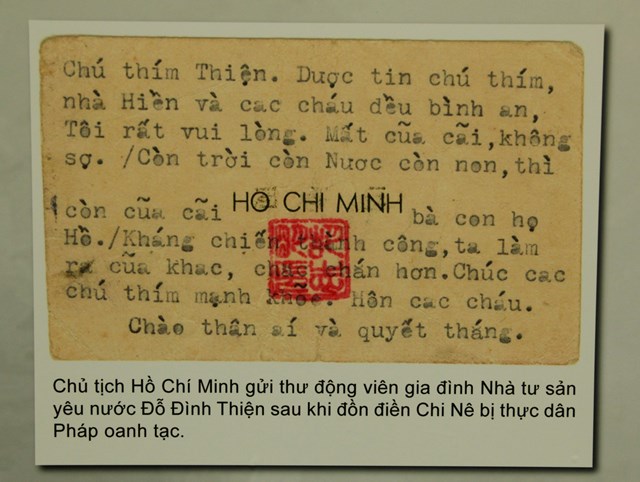 Chú thím Thiện. Dược tin chú thím,
nhà Hiền và cac cháu dều bình an,
Tôi rất vui lòng. Mất cũa cãi,không
sợ. /Còn trời còn Nươc còn non,thì
còn cũa cãi
HỒ CHI MINH
bà con họ
Hồ./Kháng chiến thành công,ta làm
ra cũa khac, chăc chán hơn.Chúc cac
chú thím mạnh khỏe. Hôn cac cháu.
Chào thân aí và quyết tháng.
Chủ tịch Hồ Chí Minh gửi thư động viên gia đình Nhà tư sản
yêu nước Đỗ Đình Thiện sau khi đồn điền Chi Nê bị thực dân
Pháp oanh tạc.